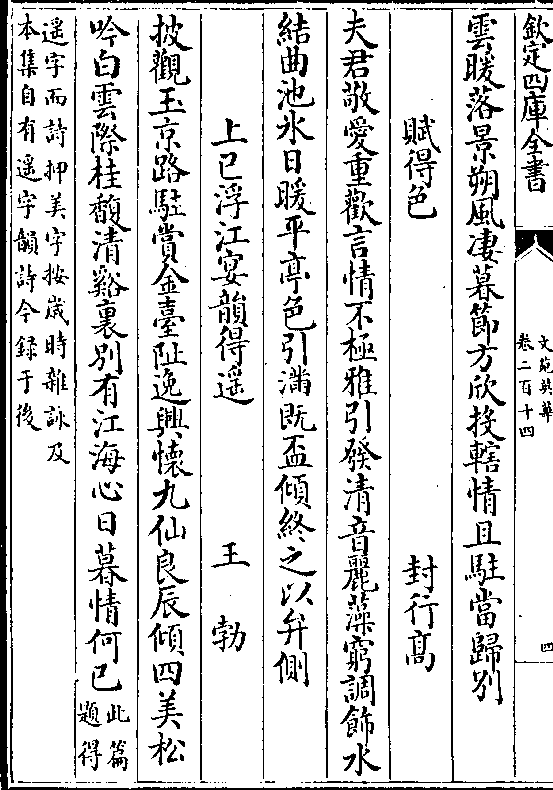 欽定四庫全書
文苑英華
卷二百十四
四
雲暖落景朔風凄暮節方欣投轄情且駐當歸别
賦得色
封行高
夫君敬愛重歡言情不極雅引發清音麗藻窮調飾水
結曲池氷日暖平亭色引滿既盃傾終之以弁側
上巳浮江宴韻得遥
王勃
披觀玉京路駐賞金臺阯逸興懷九仙良辰傾四美松
吟白雲際桂馥清谿裏別有江海心日暮情何已此篇題得
遥字而詩押美字按歲時雜詠及
本集自有遥字韻詩今録于後